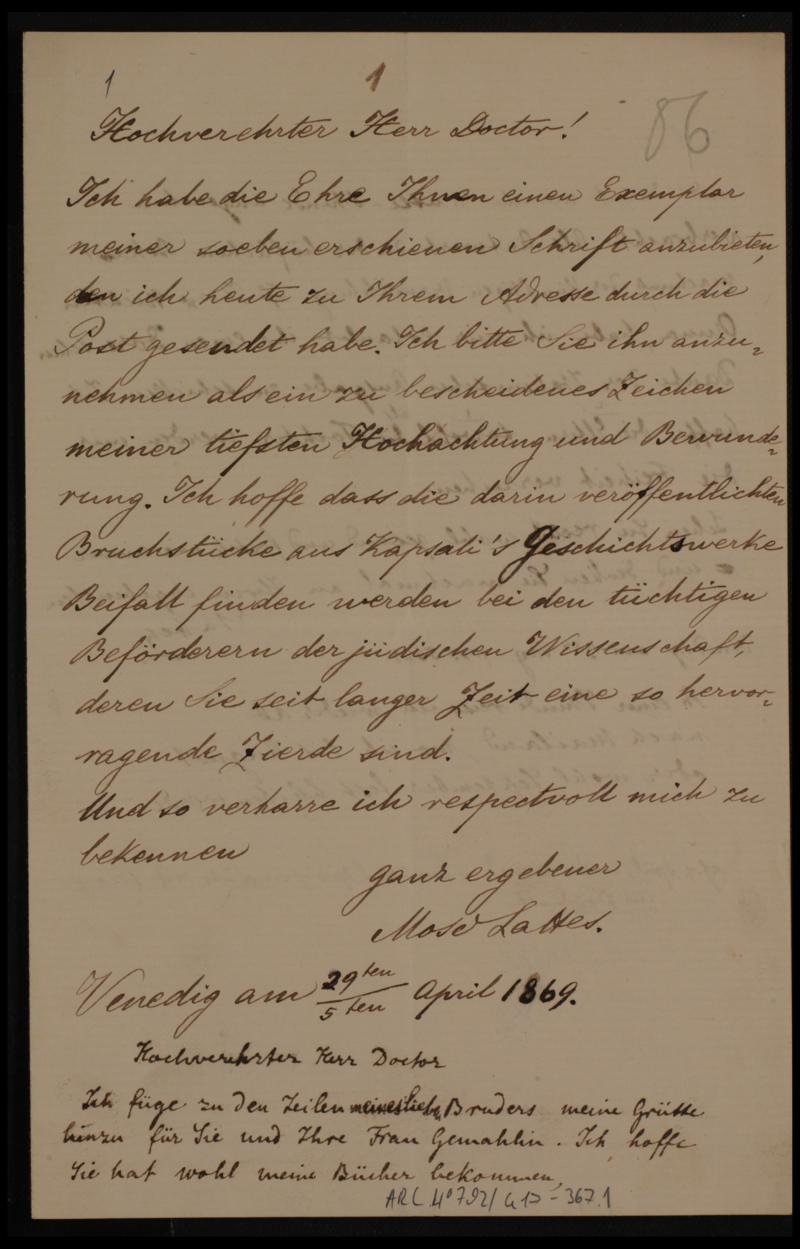 1
1
86
Hochverehrter Herr Doctor!
Ich habe die Ehre Ihnen einen Exemplar
meiner soeben erschienen Schrift anzubieten,
den ich heute zu Ihrem Adresse durch die
Post gesendet habe. Ich bitte Sie ihn anzu=
nehmen als ein zu bescheidenes Zeichen
meiner tiefsten Hochachtung und Bewunde=
rung. Ich hoffe dass die darin veröffentlichten
Bruchstücke aus Kapsali's Geschichtswerke
Beifall finden werden bei den tüchtigen
Beförderern der jüdischen Wissenschaft,
deren Sie seit langer Zeit eine so hervor=
ragende Zierde sind.
Und so verharre ich respectvoll mich zu
bekennen
ganz ergebener
Mosé Lattes.
Venedig am 29ten/5ten April 1869.
Hochverehrter Herr Doctor
Ich füge zu den Zeilen meines lieb. Bruders meine Grüsse
hinzu für Sie und Ihre Frau Gemahlin. Ich hoffe
Sie hat wohl meine Bücher bekommen,
ARC 4° 792/G17-367.1